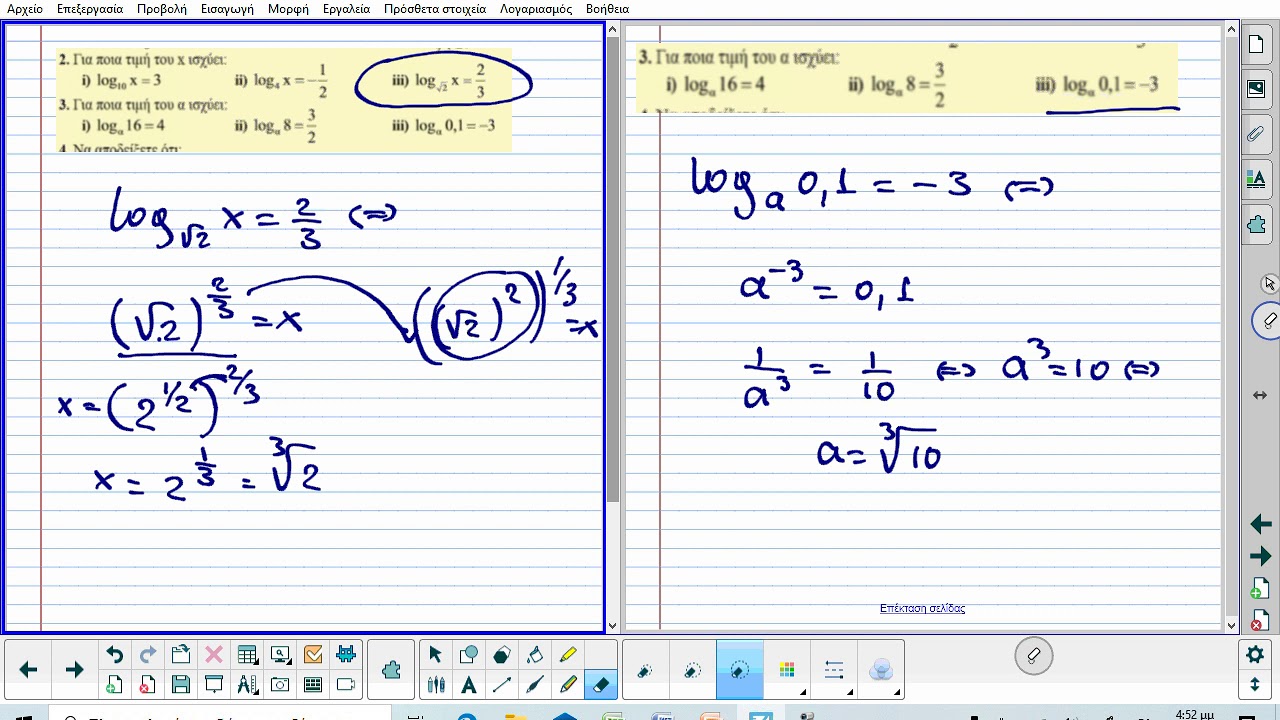 Αρχείο Επεξεργασία Προβολή Εισαγωγή Μορφή Εργαλεία Πρόσθετα στοιχεία Λογαριασμός Βοήθεια
2. Για ποια τιμή του x ισχύει:
i) log₁₀ x = 3 ii) log₄ x = −1/2 iii) log_√2 x = 2/3
3. Για ποια τιμή του α ισχύει:
i) logₐ 16 = 4 ii) logₐ 8 = 3/2 iii) logₐ 0,1 = −3
4. Να αποδείξετε ότι:
log_√2 x = 2/3 ⇔
(√2)^(2/3) = x ((√2)^2)^(1/3) = x
x = (2^(1/2))^(2/3)
x = 2^(1/3) = ∛2
3. Για ποια τιμή του α ισχύει:
i) logₐ 16 = 4 ii) logₐ 8 = 3/2 iii) logₐ 0,1 = −3
logₐ 0,1 = −3 ⇔
a^(−3) = 0,1
1/a³ = 1/10 ⇔ a³ = 10 ⇔
a = ∛10
Επέκταση σελίδας
4:52 μμ